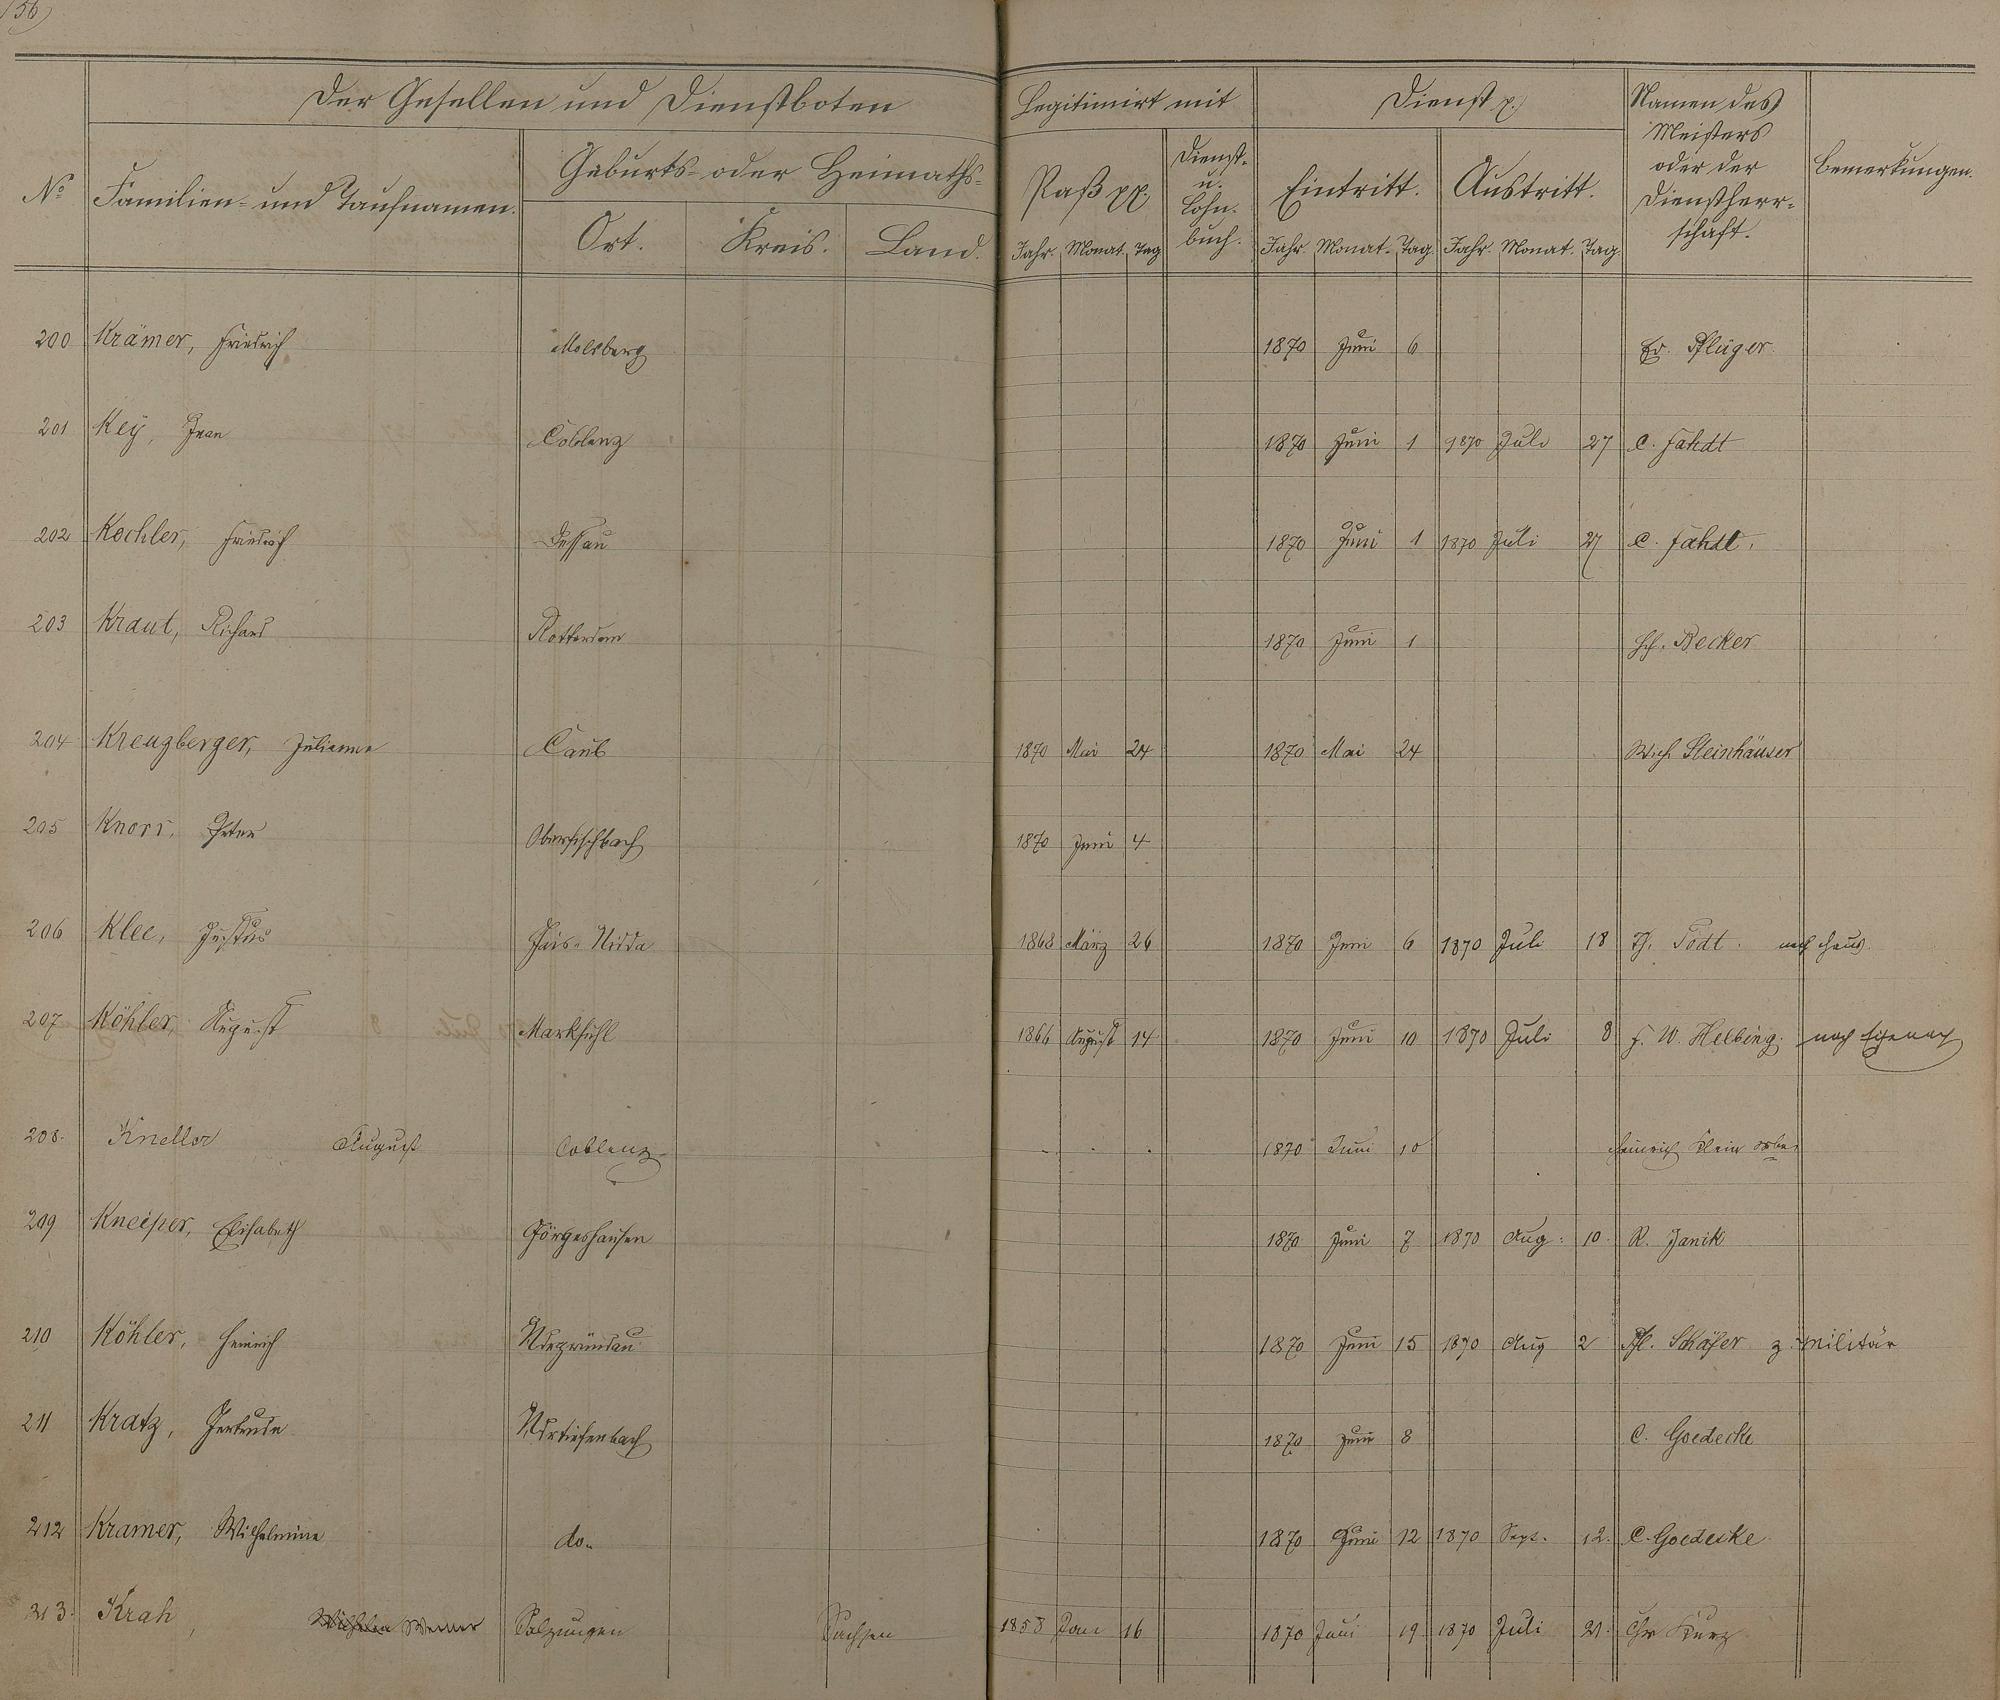 156)
Der Gesellen und Dienstboten
Legitimirt mit
Dienst p.
Namen des Meisters oder der Dienstherr-schaft.
Bemerkungen.
No
Familien- und Taufnamen.
Geburts- oder Heimaths-
Ort. Kreis. Land.
Paß pp.
Dienst- u. Lohn-buch.
Eintritt. Austritt.
Jahr. Monat. Tag Jahr. Monat. Tag. Jahr. Monat. Tag.
200 Krämer, Friedrich Molsberg 1870 Juni 6 Ed. Pflüger.
201 Key, Jean Coblenz 1870 Juni 1 1870 Juli 27 C. Fahdt
202 Kochler, Friedrich Dessau 1870 Juni 1 1870 Juli 27 C. Fahdt.
203 Kraut, Richard Rotterdam 1870 Juni 1 Becker
204 Kreuzberger, Julianne Caub 1870 Mai 24 1870 Mai 24 Steinhäuser
205 Knorr, Peter Oberfischbach 1870 Juni 4
206 Klee, Justus Nidda 1868 März 26 1870 Juni 6 1870 Juli 18 Todt. nach Haus.
207 Köhler, August Marksuhl 1866 August 14 1870 Juni 10 1870 Juli 8 F. W. Helbing. nach Eisenach
208. Kneller August Coblenz 1870 Juni 10 Heinrich Klein
209 Kneiper, Elisabeth Görgeshausen 1870 Juni 7 1870 Aug: 10 R. Janik
210 Köhler, Heinrich 1870 Juni 15 1870 Aug 2 Schäfer z. Militär
211 Kratz, Gertrude Ndrtiefenbach 1870 Juni 8 C. Goedecke
212 Kramer, Wilhelmine do. 1870 Juni 12 1870 Sept. 12. C. Goedecke
213. Krah, Werner Salzungen Sachsen 1858 Jan 16 1870 Juni 19 1870 Juli 21. Chr Kurz